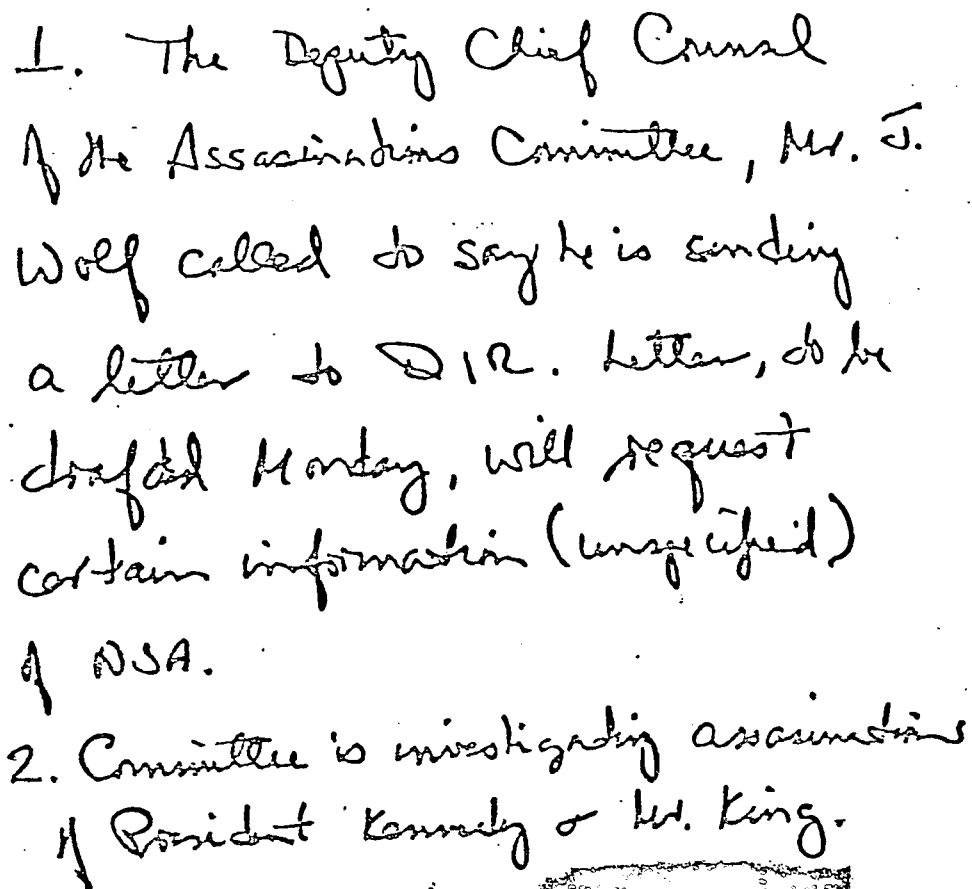 1. The Deputy Chief Counsel
of the Assasinations Committee, Mr. J.
Wolf called to say he is sending
a letter to DIR. Letter, to be
drafted Monday, will request
certain information (unspecified)
of NSA.
2. Committee is investigating assasinations
of President Kennedy & Mr. King.